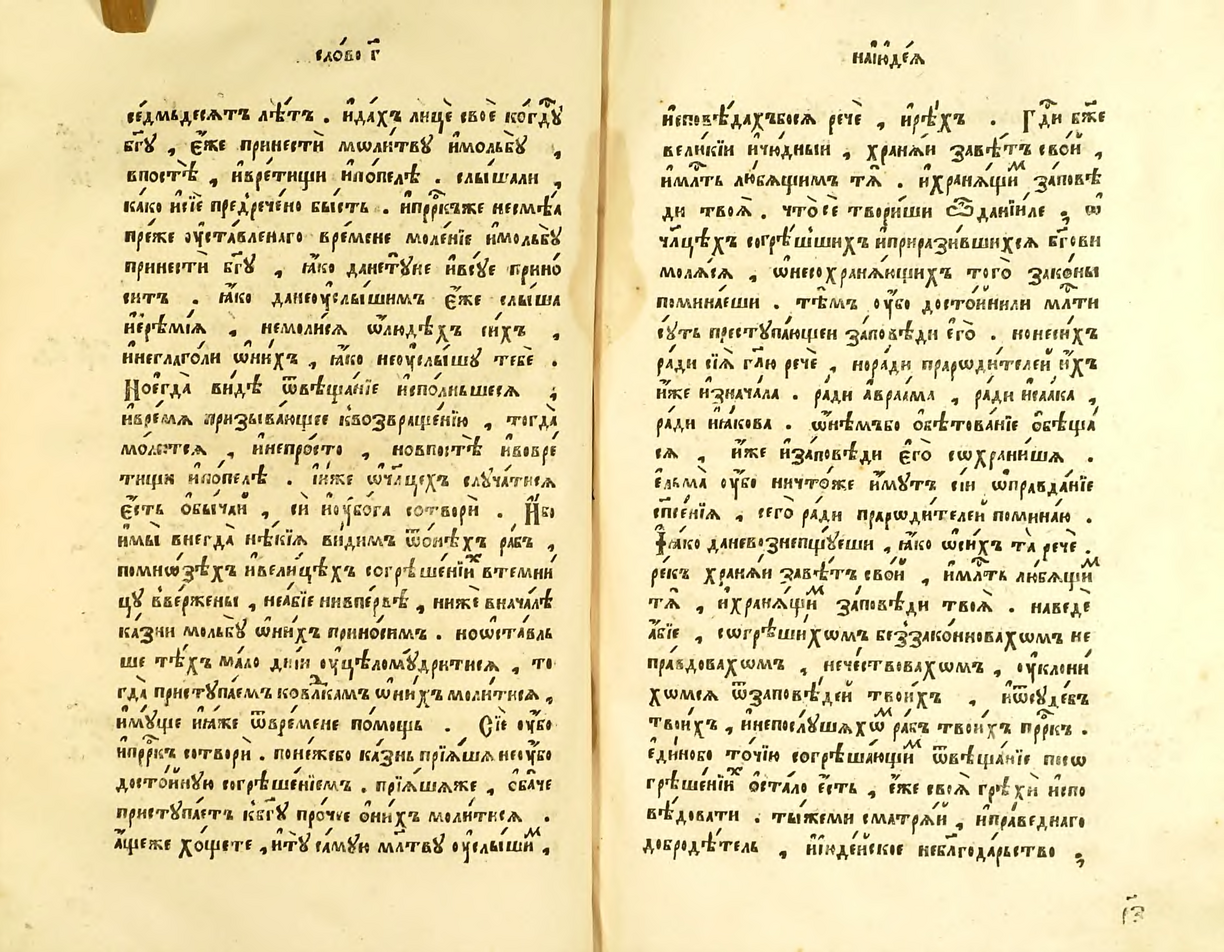 сло́во г҃
се́дмьдесѧтъ лѣ́тъ . и҆да́хъ лицѐ своѐ ко́гдꙋ̾
бг҃ꙋ , е҆́же принестѝ мѡли́твꙋ и҆мольбꙋ̀ ,
впостѣ̀ , и҆вре́тищи и҆по́пелѣ . слы́шали ,
ка́ко и҆сїѐ предрече́но бы́сть . и҆прⷪ҇ркъже несмѣ́ѧ
пре́же ᲂу҆ста́вленаго вре́мене моле́нїе и҆мольбꙋ̀
принестѝ бг҃ꙋ , ꙗ҆́ко дане́тꙋне и҆всꙋ́е прино́
ситъ . ꙗ҆́ко данеꙋслы́шимъ е҆́же слы́ша
і҆єремі́ѧ , немоли́сѧ ѡ҆лю́дѣхъ си́хъ ,
и҆неглаго́ли ѡ҆ни́хъ , ꙗ҆́ко неꙋслы́шꙋ тебѐ .
Ное҆гда̀ ви́дѣ ѿвѣща́нїе и҆спо́лньшеесѧ ;
и҆вре́мѧ призыва́ющее квозвраще́нїю , тогда̀
мо́литсѧ , и҆непро́сто , новпостѣ̀ и҆вовре́
тищи и҆по́пелѣ . і҆и҆́же ѡ҆чл҃цехъ слꙋча́тисѧ
е҆́сть ѡ҆бы́чаи , сѝ и҆ꙋбо́га сотворѝ . И҆́бо
и҆мы̀ внегда̀ нѣ́кїѧ ви́димъ ѿо҆нѣ́хъ ра́бъ ,
помно́зѣхъ и҆вели́цѣхъ согрѣше́нїиⷯ втемни́
цꙋ вве́ржены , неа́бїе нивпе́рвѣ , ниже внача́лѣ
ка́зни мольбꙋ̀ ѡ҆ни́хъ прино́симъ . ноѡ҆ста́вль
ше тѣ́хъ ма́ло дні́и ᲂу҆цѣломꙋ́дритисѧ , то
гда̀ пристꙋпа́емъ ковлⷣкамъ ѡ҆ни́хъ моли́тисѧ ,
и҆мꙋ́ще и҆ꙗ҆́же ѿвре́мене по́мощь . Сїѐ ᲂу҆́бо
и҆прⷪ҇ркъ сотворѝ . поне́жебо ка́знь прїѧ́шѧ неᲂу҆́бо
досто́йнꙋю согрѣше́нїемъ . прїѧ́шѧже , ѻ҆ба́че
пристꙋпа́етъ кбг҃ꙋ про́чее ѻ҆ни́хъ моли́тисѧ .
а҆́щеже хо́щете , и҆тꙋ̀ са́мꙋю мл҃твꙋ ᲂу҆слы́шиⷨ ,
наі҆юде́ѧ
и҆сповѣ́дахъбосѧ речѐ , и҆рѣ́хъ . Гдⷭ҇и бж҃е
вели́кїи и҆чю́дныи , хранѧ́и завѣ́тъ сво́и ,
и҆млⷭ҇ть лю́бѧщимъ тѧ̀ . и҆хранѧ́щиⷨ за́повѣ
ди твоѧ̀ . что́се твори́ши ѽ дані́иле ; ѡ҆
чл҃цѣхъ согрѣ́шшихъ и҆прирази́вшихсѧ бг҃ови
мо́лѧсѧ , ѡ҆несохранѧ́ющихъ того̀ зако́ны
помина́еши . тѣ́мъ ᲂу҆́бо досто́йнили млⷭ҇ти
сꙋ́ть престꙋпа́ющеи за́повѣди е҆го̀ . нонеси́хъ
ра́ди сїѧ̀ гл҃ю речѐ , нора́ди праро́дителей и҆́хъ
и҆́же и҆знача́ла . ра́ди а҆враа́ма , ра́ди і҆саа́ка ,
ра́ди і҆а́кова . ѡ҆ни́мъбо ѡ҆бѣтова́нїе ѡ҆бѣща́
сѧ , и҆́же и҆за́повѣди е҆го̀ сѡхрани́шѧ .
Е҆льма̀ ᲂу҆́бо ничто́же и҆́мꙋтъ сі́и ѡ҆правда́нїе
спⷭ҇нїѧ , сего̀ ра́ди праро́дителей помина́ю .
Ꙗ҆́ко даневознепщꙋ́еши , ꙗ҆́ко ѡ҆си́хъ та̀ речѐ .
ре́къ хранѧ́и завѣ́тъ сво́и , и҆млⷭ҇ть лю́бѧщиⷨ
тѧ̀ , и҆хранѧ́щиⷨ за́повѣди твоѧ̀ . наведѐ
а҆́бїе , сѡгрѣши́хѡмъ беззако́нновахѡмъ не
пра́вдовахѡмъ , нече́ствовахѡмъ , ᲂу҆клони́
хѡмсѧ ѿза́повѣдей твои́хъ , и҆ѿсꙋ́дебъ
твои́хъ , и҆непослꙋ́шахѡⷨ ра́бъ твои́хъ прⷪ҇ркъ .
е҆ди́нобо то́чїю согрѣша́ющиⷨ ѿвѣща́нїе посо
грѣше́нїиⷯ ѡ҆ста́ло е҆́сть , е҆́же своѧ̀ грѣхѝ и҆спо
вѣ́довати . ты́жеми сматрѧ́й , и҆пра́веднаго
добродѣ́тель , и҆і҆юде́йское неблагода́рьство ;
г҃з